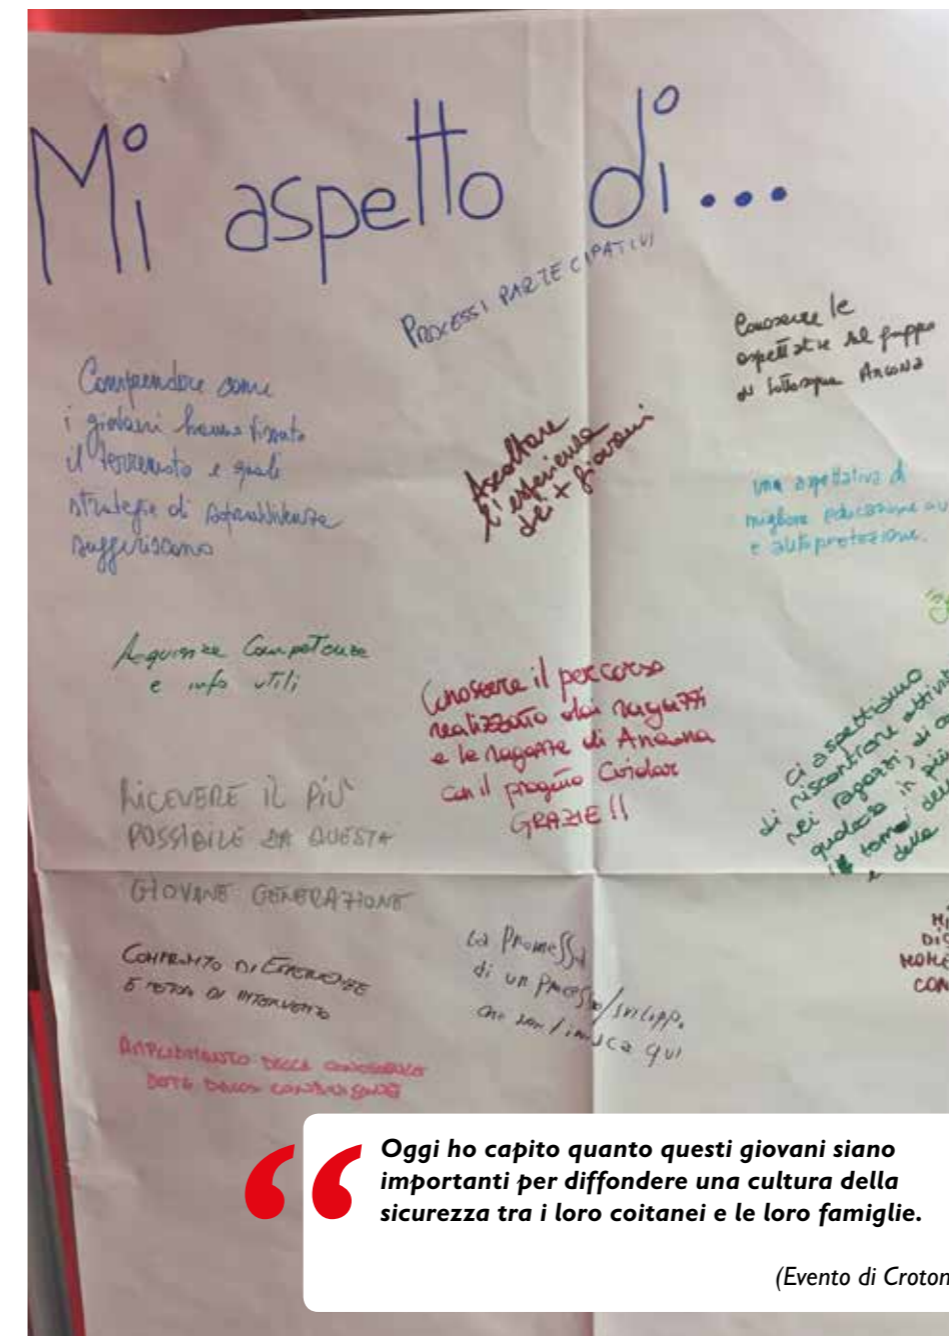 Mi aspetto di...
PROCESSI PARTECIPATIVI
Conoscere le
aspettative del gruppo
di Ancona
Comprendere come
i giovani hanno vissuto
il terremoto e quali
strategie di sopravvivenza
suggeriscono
Ascoltare
l'esperienza
dei + giovani
una aspettativa di
migliore educazione
e autoprotezione.
Acquisire Competenze
e info utili
Conoscere il percorso
realizzato dai ragazzi
e le ragazze di Ancona
con il progetto Cuidar
GRAZIE !!
ci aspettiamo
di riscontrare
nei ragazzi, di
qualcosa in più
e della
RICEVERE IL PIÙ
POSSIBILE DA QUESTA
GIOVANE GENERAZIONE
CONFRONTO DI ESPERIENZE
E METODI DI INTERVENTO
La Promessa
di un processo/sviluppo
che non finisca qui
AMPLIAMENTO DELLA CONOSCENZA
“
Oggi ho capito quanto questi giovani siano
importanti per diffondere una cultura della
sicurezza tra i loro coitanei e le loro famiglie.
(Evento di Croton